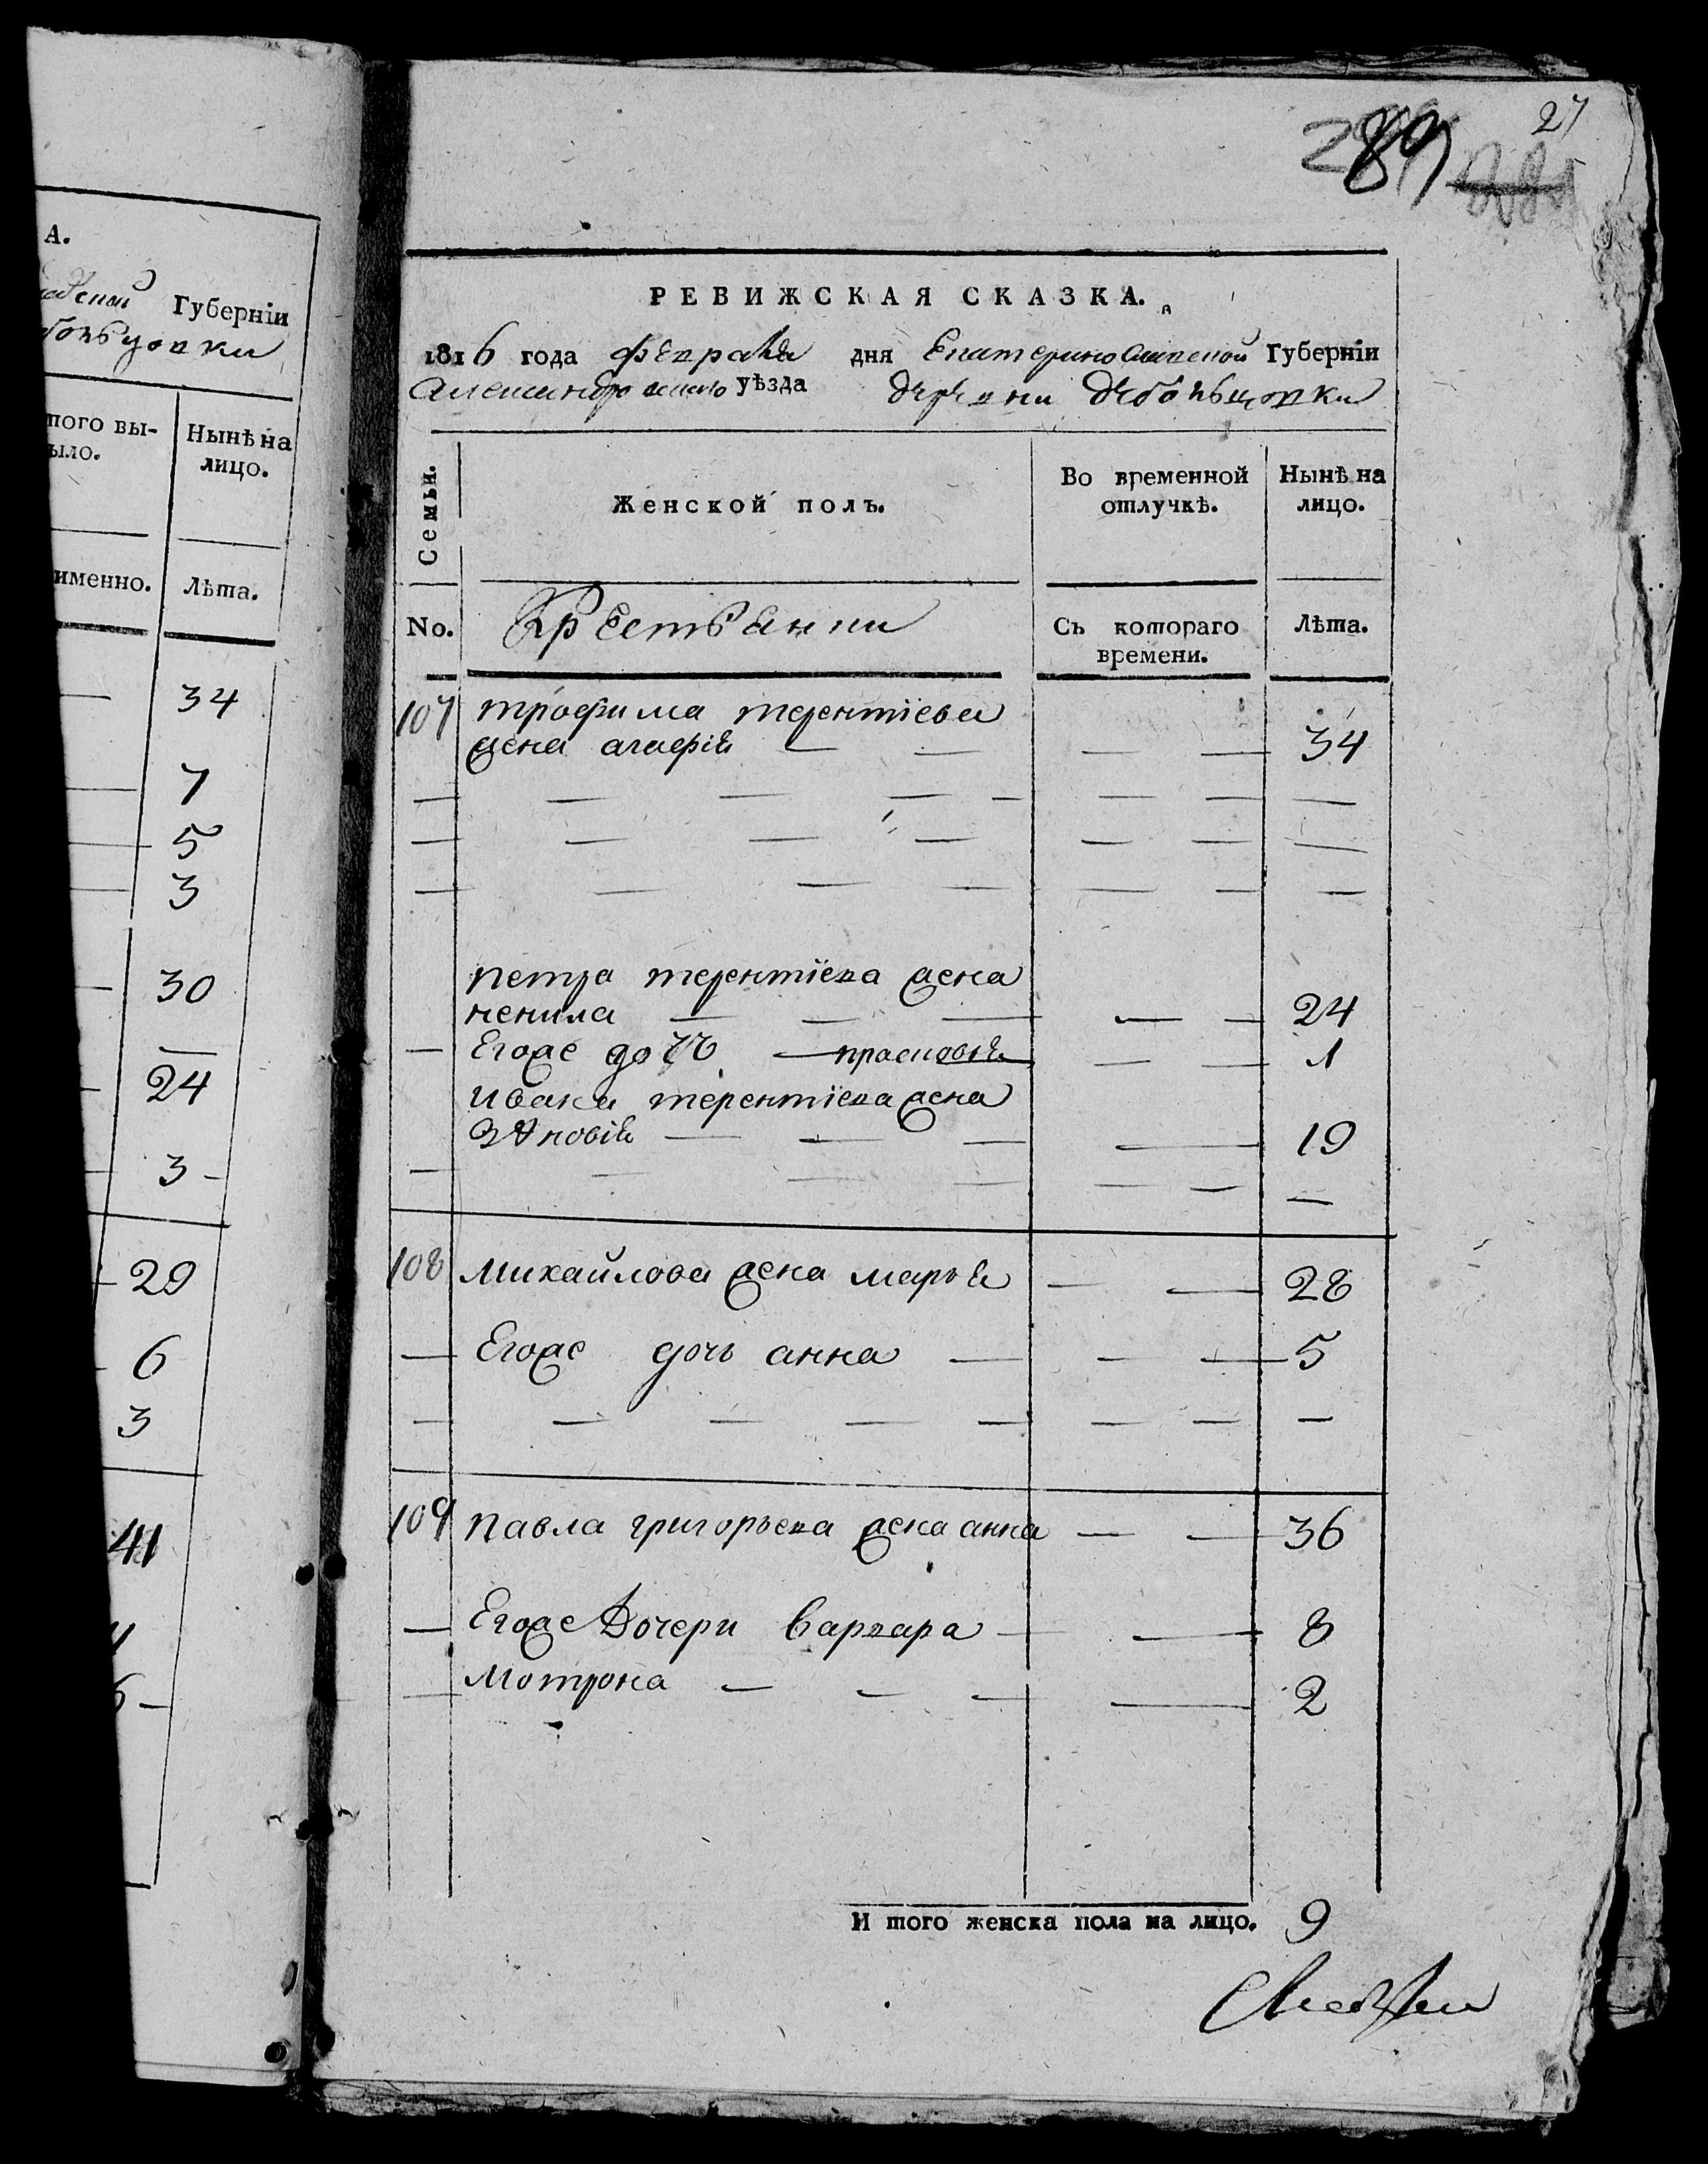 А.
Губерніи
того вы-
ыло.
Нынѣ на
лицо.
именно.
Лѣта.
34
7
5
3
30
24
3
29
6
3
41
27
89
РЕВИЖСКАЯ СКАЗКА.
1816 года февраля дня Екатеринославской Губерніи
Александровскаго уѣзда деревни
Семьи.
Женской полъ.
Во временной
отлучкѣ.
Нынѣ на
лицо.
No.
Крестьянки
Съ котораго
времени.
Лѣта.
107 трофима терентіева
жена агафія — — — — 34
— — — — — — — —
— — — — — — —
— — — — — — —
петра терентіева жена
ненила — — — — — 24
— Егоже дочь — прасковія — — 1
ивана терентіева жена
зѣновія — — — — 19
— — — — — — —
108 михайлова жена марья — — 28
— Егоже дочь анна — — — 5
— — — — — — — —
109 павла григорьева жена анна — — 36
— Егоже Дочери варвара — — 8
— мотрона — — — — 2
И того женска пола на лицо. 9